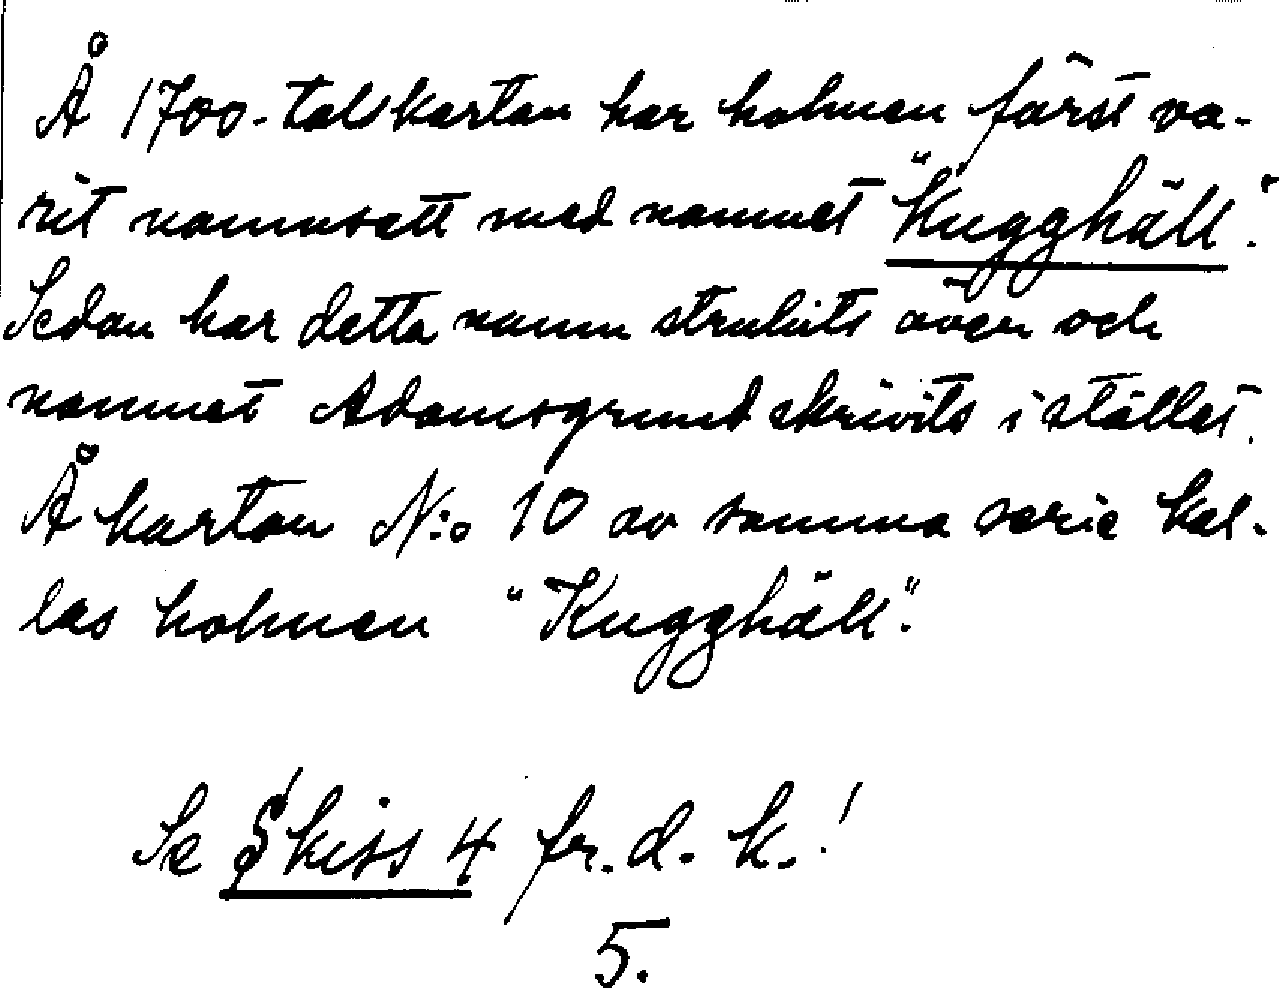 Å 1700-talskartan har holmen först va-
rit namnsatt med namnet "Kugghäll".
Sedan har detta namn strukits över och
namnet Adamsgrund skrivits i stället.
Å kartan N:o 10 av samma serie kal-
las holmen "Kugghäll".
Se Skiss 4 fr. d. k.!
5.